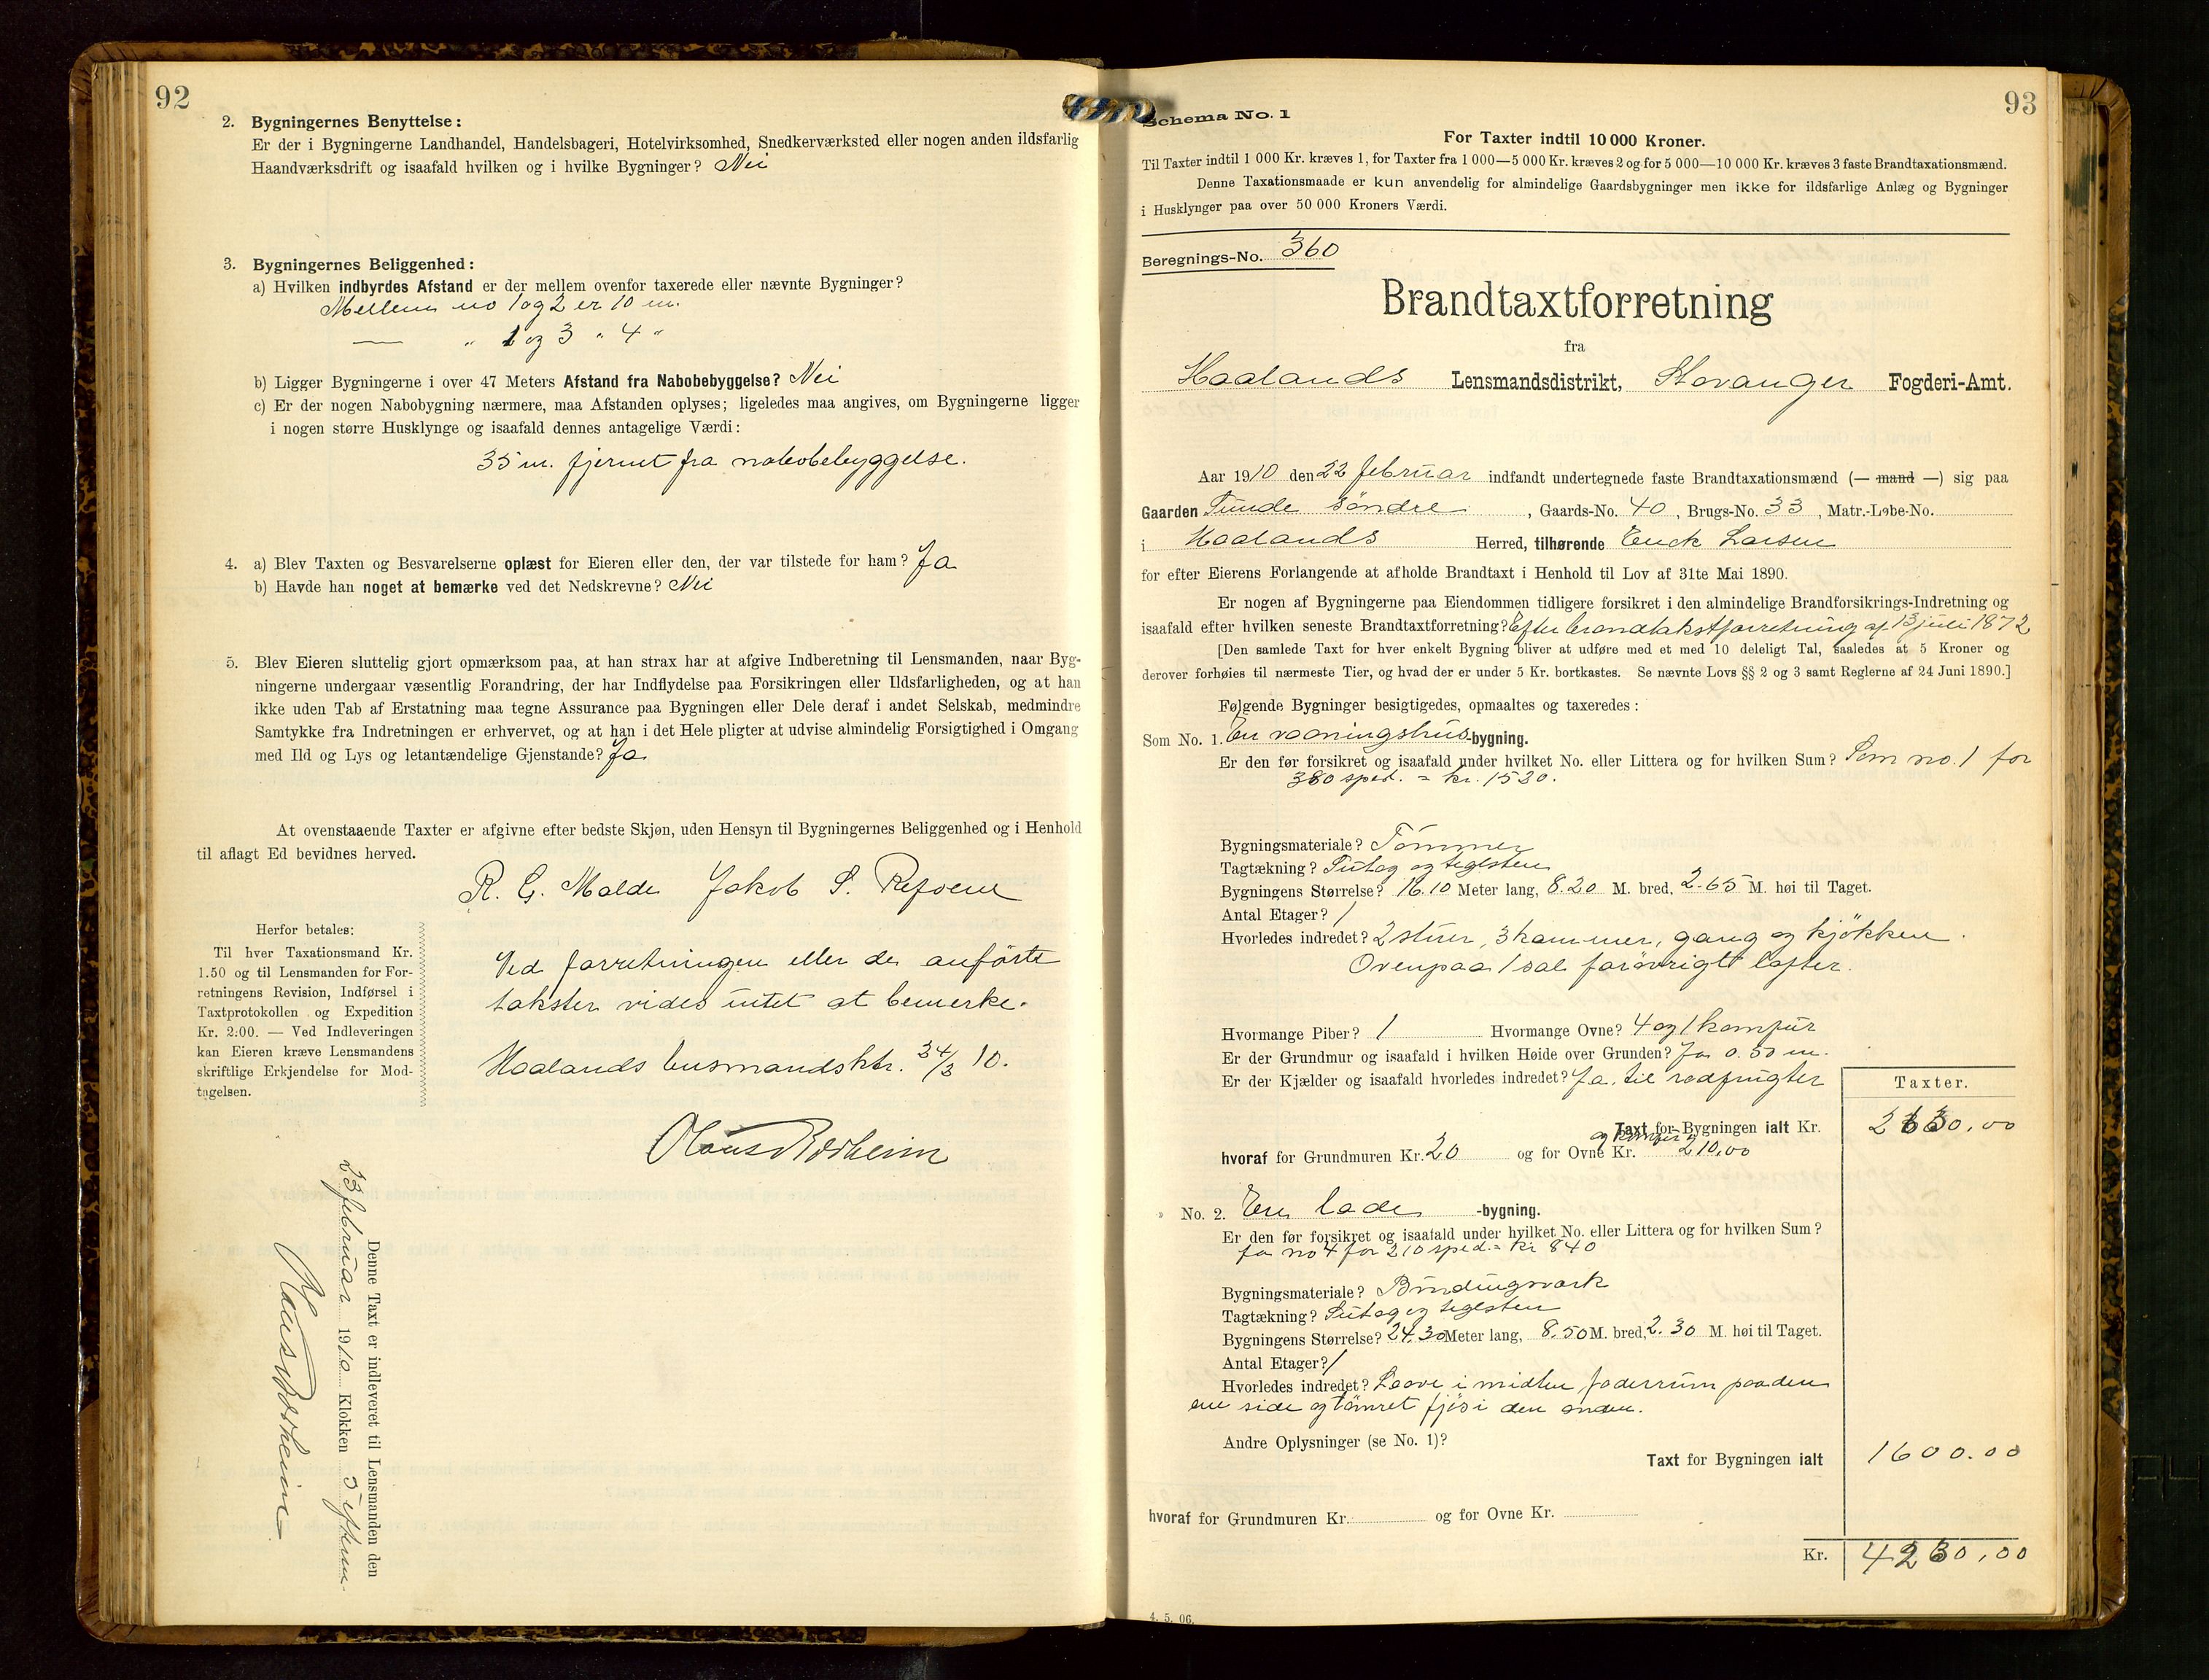 92
2. Bygningernes Benyttelse:
Er der i Bygningerne Landhandel, Handelsbageri, Hotelvirksomhed, Snedkerværksted eller nogen anden ildsfarlig
Haandværksdrift og isaafald hvilken og i hvilke Bygninger? Nei
3. Bygningernes Beliggenhed:
a) Hvilken indbyrdes Afstand er der mellem ovenfor taxerede eller nævnte Bygninger?
Mellem no 1 og 2 er 10 m.
— " 1 og 3 " 4 "
b) Ligger Bygningerne i over 47 Meters Afstand fra Nabobebyggelse? Nei
c) Er der nogen Nabobygning nærmere, maa Afstanden oplyses; ligeledes maa angives, om Bygningerne ligger
i nogen større Husklynge og isaafald dennes antagelige Værdi:
35 m. fjernet fra nabobebyggelse.
4. a) Blev Taxten og Besvarelserne oplæst for Eieren eller den, der var tilstede for ham? Ja
b) Havde han noget at bemærke ved det Nedskrevne? Nei
5. Blev Eieren sluttelig gjort opmærksom paa, at han strax har at afgive Indberetning til Lensmanden, naar Byg-
ningerne undergaar væsentlig Forandring, der har Indflydelse paa Forsikringen eller Ildsfarligheden, og at han
ikke uden Tab af Erstatning maa tegne Assurance paa Bygningen eller Dele deraf i andet Selskab, medmindre
Samtykke fra Indretningen er erhvervet, og at han i det Hele pligter at udvise almindelig Forsigtighed i Omgang
med Ild og Lys og letantændelige Gjenstande? Ja
At ovenstaaende Taxter er afgivne efter bedste Skjøn, uden Hensyn til Bygningernes Beliggenhed og i Henhold
til aflagt Ed bevidnes herved.
R. G. Malde Jakob S.
Herfor betales:
Til hver Taxationsmand Kr.
1.50 og til Lensmanden for For-
retningens Revision, Indførsel i
Taxtprotokollen og Expedition
Kr. 2:00. — Ved Indleveringen
kan Eieren kræve Lensmandens
skriftlige Erkjendelse for Mod-
tagelsen.
Ved forretningen eller de anförte
takster vides intet at bemerke.
Haalands lensmandsktr. 24/3 10.
Denne Taxt er indleveret til Lensmanden den
23 februar 1910 Klokken 5 efterm.
93
Schema No. 1
For Taxter indtil 10 000 Kroner.
Til Taxter indtil 1 000 Kr. kræves 1, for Taxter fra 1 000—5 000 Kr. kræves 2 og for 5 000—10 000 Kr. kræves 3 faste Brandtaxationsmænd.
Denne Taxationsmaade er kun anvendelig for almindelige Gaardsbygninger men ikke for ildsfarlige Anlæg og Bygninger
i Husklynger paa over 50 000 Kroners Værdi.
Beregnings-No. 360
Brandtaxtforretning
fra
Haalands Lensmandsdistrikt, Stavanger Fogderi-Amt.
Aar 1910 den 22 februar indfandt undertegnede faste Brandtaxationsmænd (— mand —) sig paa
Gaarden Tunde söndre, Gaards-No. 40, Brugs-No. 33, Matr.-Løbe-No.
i Haalands Herred, tilhørende Enok Larsen
for efter Eierens Forlangende at afholde Brandtaxt i Henhold til Lov af 31te Mai 1890.
Er nogen af Bygningerne paa Eiendommen tidligere forsikret i den almindelige Brandforsikrings-Indretning og
isaafald efter hvilken seneste Brandtaxtforretning? Efter brandtakstforretning af 13 juli 1872
[Den samlede Taxt for hver enkelt Bygning bliver at udføre med et med 10 deleligt Tal, saaledes at 5 Kroner og
derover forhøies til nærmeste Tier, og hvad der er under 5 Kr. bortkastes. Se nævnte Lovs §§ 2 og 3 samt Reglerne af 24 Juni 1890.]
Følgende Bygninger besigtigedes, opmaaltes og taxeredes:
Som No. 1. En vaaningshus-bygning.
Er den før forsikret og isaafald under hvilket No. eller Littera og for hvilken Sum? Som no. 1 for
380 spd. = kr. 1520.
Bygningsmateriale? Tömmer
Tagtækning? Sutag og teglsten
Bygningens Størrelse? 16.10 Meter lang, 8.20 M. bred, 2.65 M. høi til Taget.
Antal Etager? 1
Hvorledes indredet? 2 stuer, 3 kammer, gang og kjökken.
Ovenpaa 1 sal forövrigt lofter.
Hvormange Piber? 1 Hvormange Ovne? 4 og 1 komfur
Er der Grundmur og isaafald i hvilken Høide over Grunden? Ja 0.50 m.
Er der Kjælder og isaafald hvorledes indredet? Ja, til rodfrugter
Taxter.
Taxt for Bygningen ialt Kr. 2630,00
og komfur
hvoraf for Grundmuren Kr. 20 og for Ovne Kr. 210,00
No. 2. En lade -bygning.
Er den før forsikret og isaafald under hvilket No. eller Littera og for hvilken Sum?
Ja no 4 for 210 spd. = kr 840
Bygningsmateriale? Bindingsverk
Tagtækning? Sutag og teglsten
Bygningens Størrelse? 24.30 Meter lang, 8.50 M. bred, 2.30 M. høi til Taget.
Antal Etager? 1
Hvorledes indredet? Laave i midten, foderrum paa den
ene side og tömret fjös i den anden.
Andre Oplysninger (se No. 1)?
Taxt for Bygningen ialt 1600.00
hvoraf for Grundmuren Kr. og for Ovne Kr.
Kr. 4230,00
4. 5. 06.